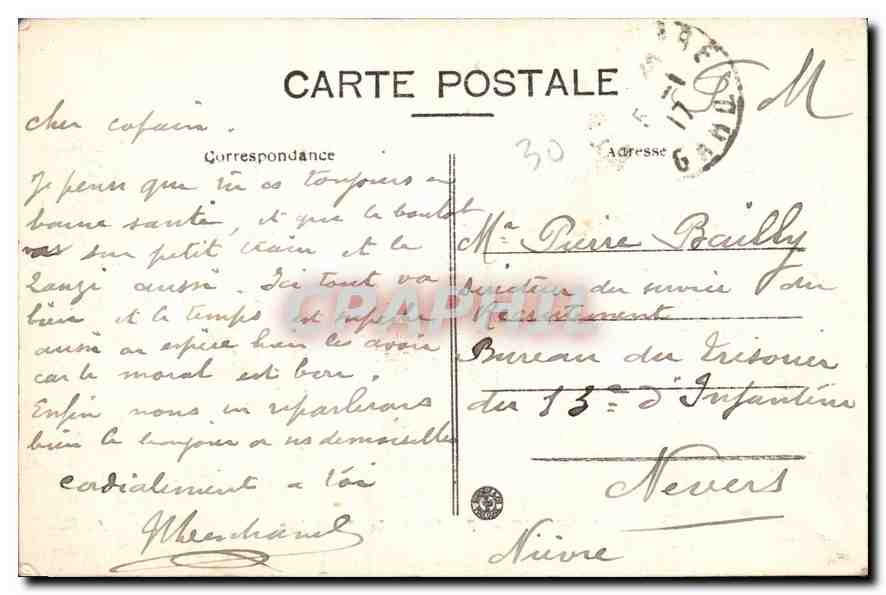 CARTE POSTALE
F M
30
5 -1
17
GARD
Correspondance
Adresse
cher copain.
Je pense que tu es toujours en
bonne santé, et que le boulot
vas son petit train et le
aussi. Ici tout va
bien et le temps est superbe
aussi on espère bien les avoir
car le moral est bon.
Enfin nous en reparlerons
bien le bonjour a nos demoiselles
cordialement a toi
Mr Pierre Bailly
Directeur du service du
Recrutement
Bureau du Trésorier
du 13e d'Infanterie
Nevers
Nièvre
CPAPHIL